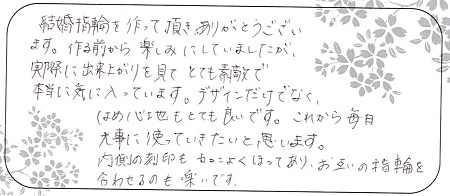 結婚指輪を作って頂きありがとうござい
ます。作る前から楽しみにしていましたが、
実際に出来上がりを見てとても素敵で
本当に気に入っています。デザインだけでなく、
はめ心地もとても良いです。これから毎日
大事に使っていきたいと思います。
内側の刻印もカッコよくほってあり、お互いの指輪を
合わせるのも楽いです。